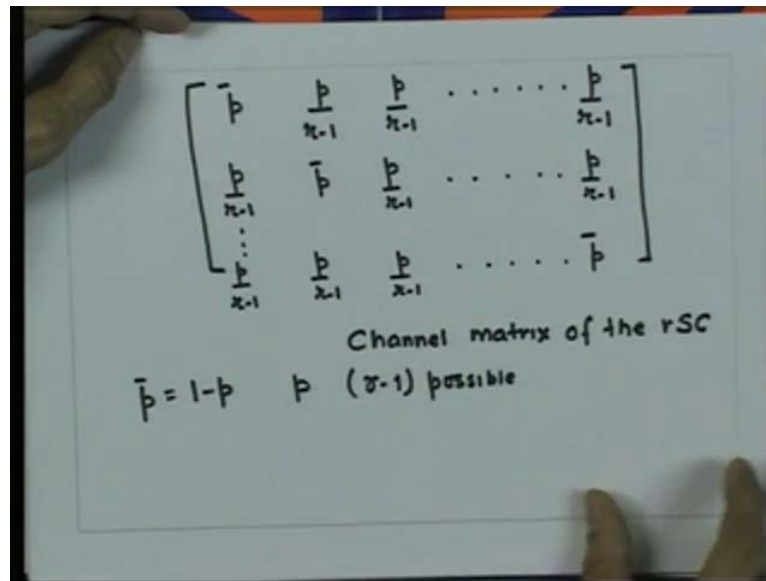 p̄ p/r-1 p/r-1 ...... p/r-1
p/r-1 p̄ p/r-1 ..... p/r-1
⋮
p/r-1 p/r-1 p/r-1 ..... p̄
Channel matrix of the rSC
p̄ = 1-p p (r-1) possible